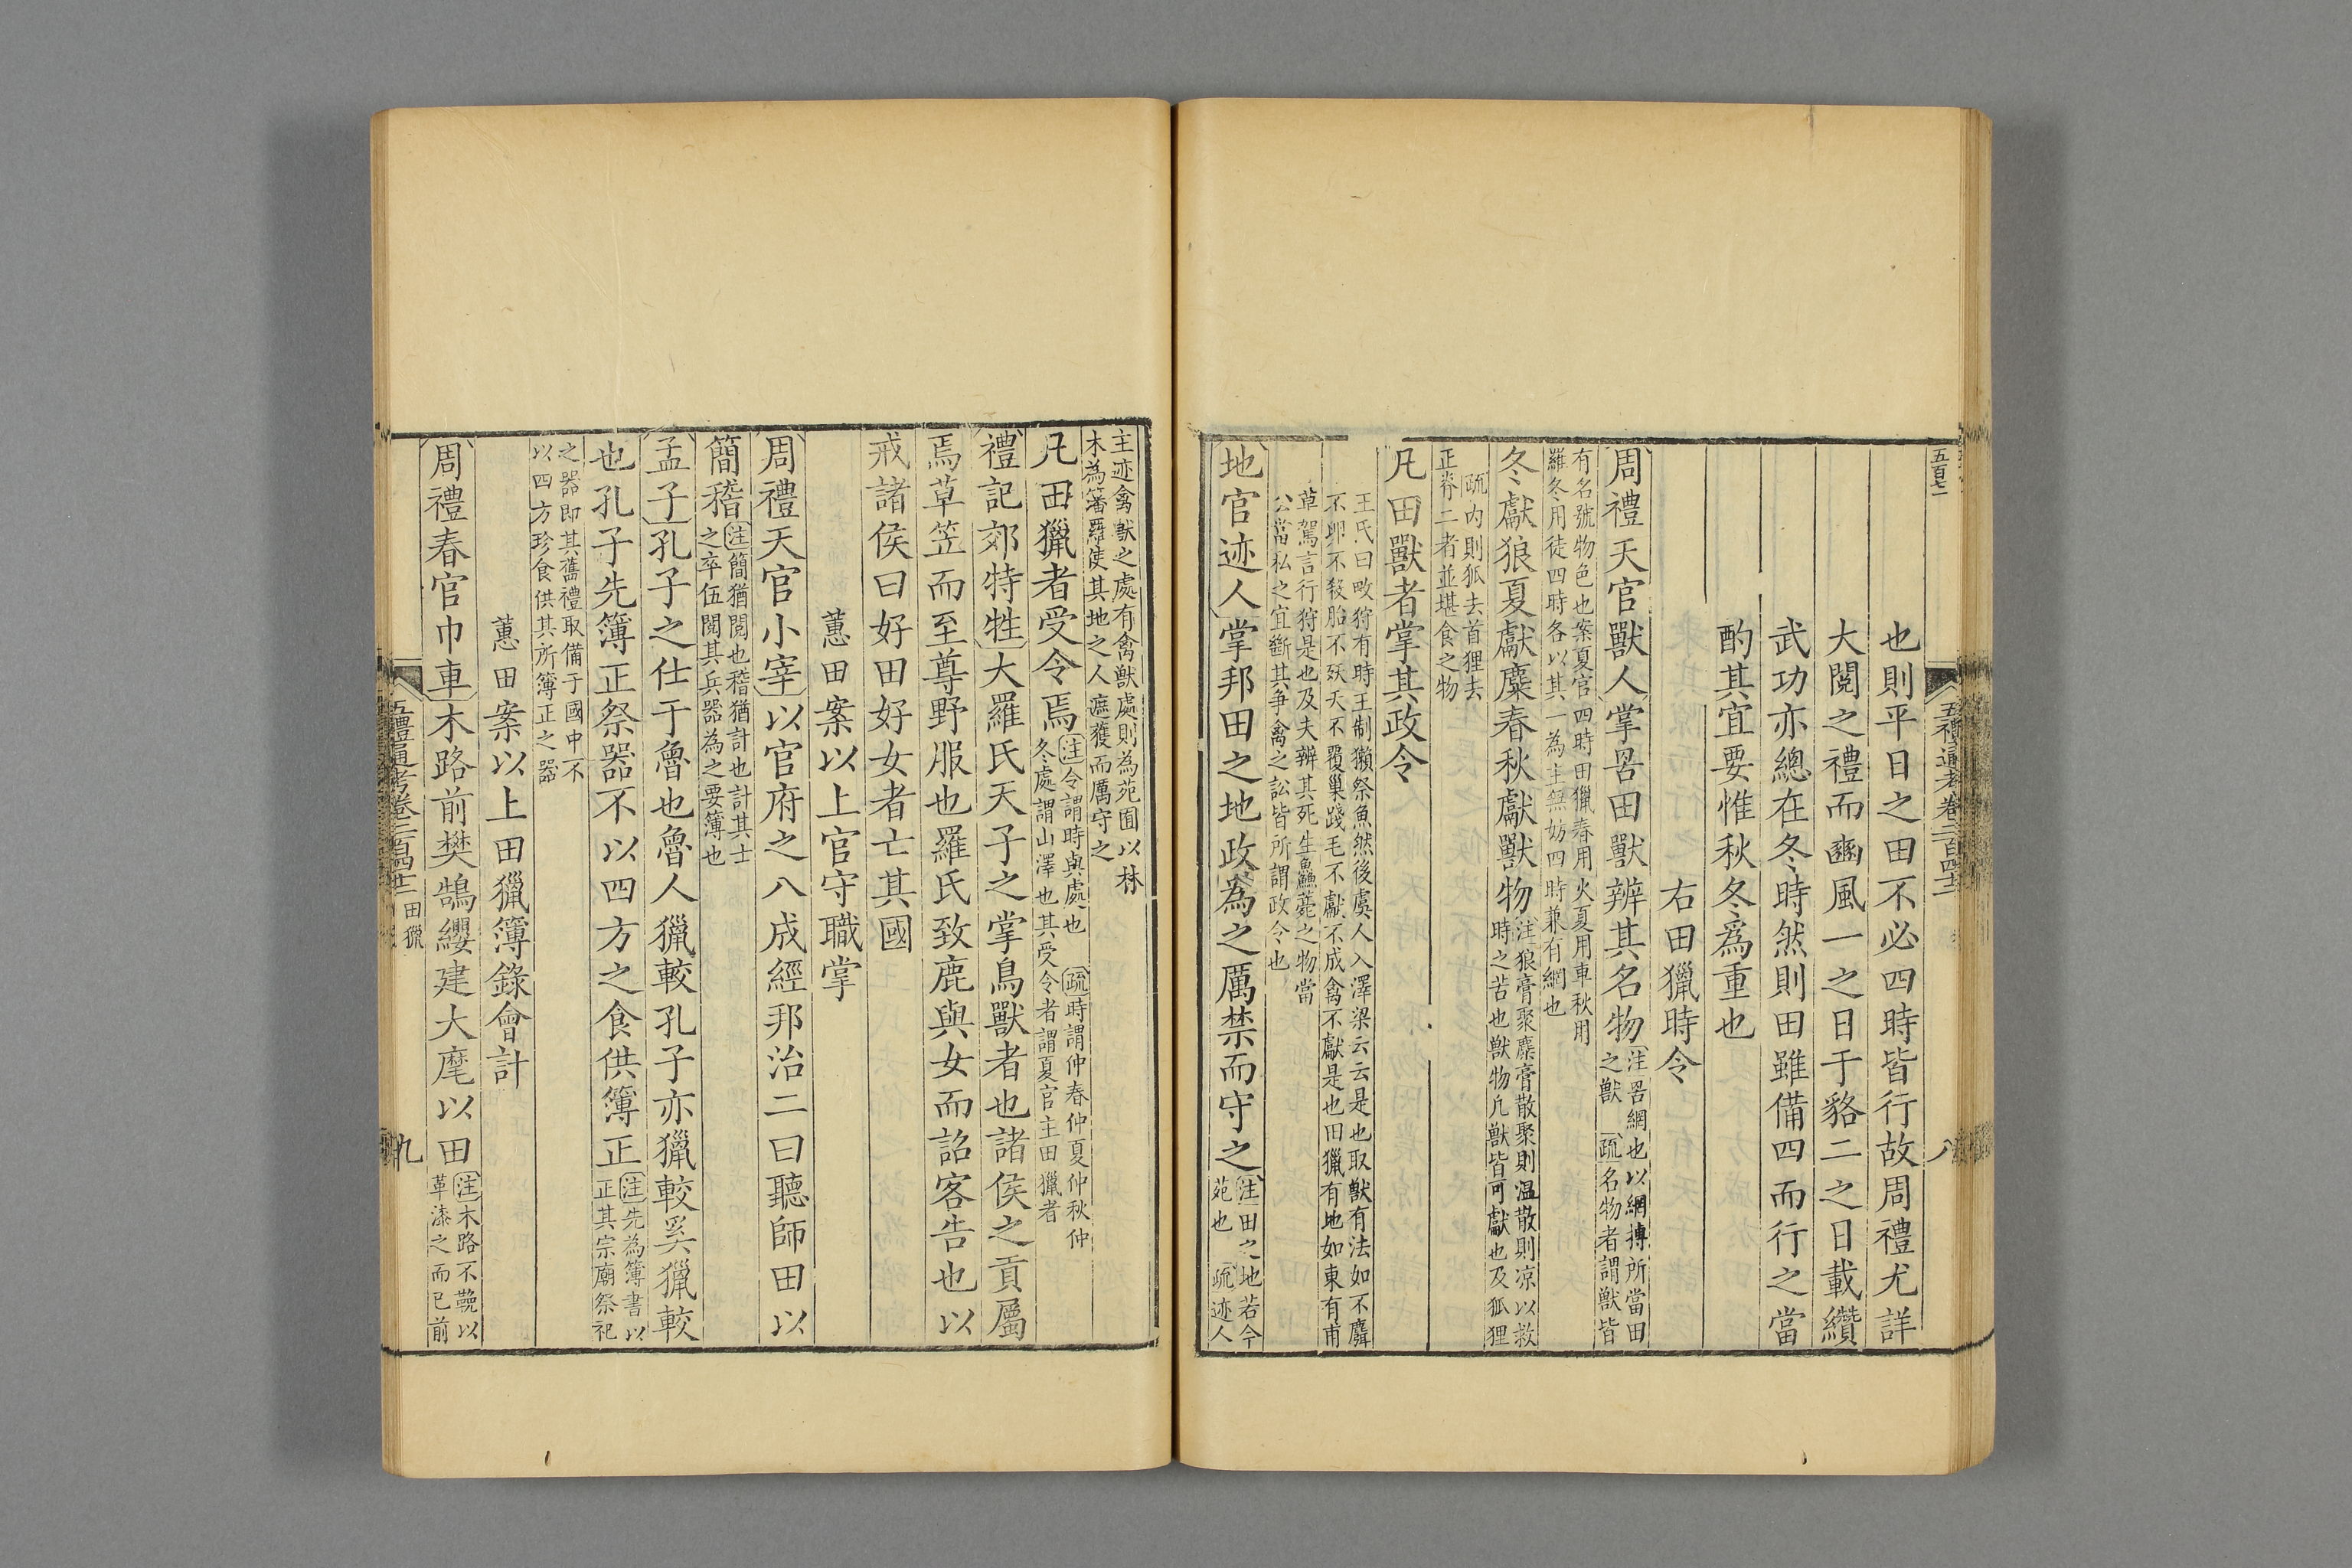 五百七一
五禮通考卷二百四十二
八
也則平日之田不必四時皆行故周禮尤詳
大閱之禮而豳風一之日于貉二之日載纘
武功亦總在冬時然則田雖備四而行之當
酌其宜要惟秋冬爲重也
右田獵時令
周禮天官獸人掌罟田獸辨其名物注罟網也以網搏所當田
之獸 疏名物者謂獸皆
有名號物色也案夏官四時田獵春用火夏用車秋用
羅冬用徒四時各以其一為主無妨四時兼有網也
冬獻狼夏獻麋春秋獻獸物注狼膏聚麋膏散聚則温散則凉以救
時之苦也獸物凡獸皆可獻也及狐狸
疏內則狐去首狸去
正脊二者並堪食之物
凡田獸者掌其政令
王氏曰畋狩有時王制獺祭魚然後虞人入澤梁云云是也取獸有法如不麛
不卵不殺胎不殀夭不覆巢踐毛不獻不成禽不獻是也田獵有地如東有甫
草駕言行狩是也及夫辨其死生鱻薧之物當
公當私之宜斷其爭禽之訟皆所謂政令也
地官迹人掌邦田之地政為之厲禁而守之注田之地若今
苑也 疏迹人
主迹禽獸之處有禽獸處則為苑囿以林
木為籓羅使其地之人遮獲而厲守之
凡田獵者受令焉注令謂時與處也 疏時謂仲春仲夏仲秋仲
冬處謂山澤也其受令者謂夏官主田獵者
禮記郊特牲大羅氏天子之掌鳥獸者也諸侯之貢屬
焉草笠而至尊野服也羅氏致鹿與女而詔客告也以
戒諸侯曰好田好女者亡其國
蕙田案以上官守職掌
周禮天官小宰以官府之八成經邦治二曰聽師田以
簡稽注簡猶閱也稽猶計也計其士
之卒伍閱其兵器為之要簿也
孟子孔子之仕于魯也魯人獵較孔子亦獵較奚獵較
也孔子先簿正祭器不以四方之食供簿正注先為簿書以
正其宗廟祭祀
之器即其舊禮取備于國中不
以四方珍食供其所簿正之器
蕙田案以上田獵簿錄會計
周禮春官巾車木路前樊鵠纓建大麾以田注木路不鞔以
革漆之而已前
五禮通考卷二百四十二 田獵
九